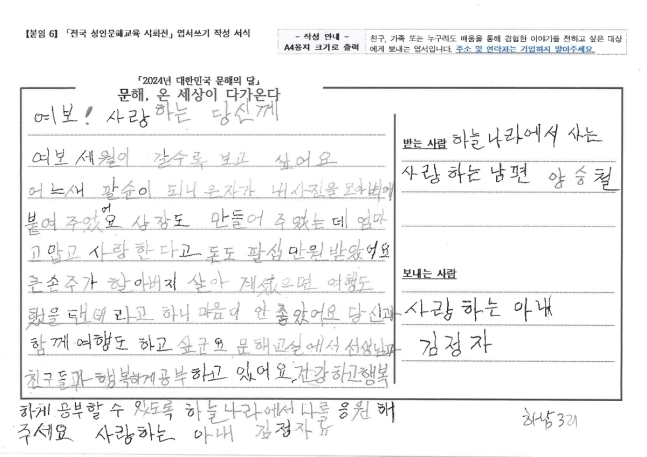 【붙임 6】 「전국 성인문해교육 시화전」 엽서쓰기 작성 서식
- 작성 안내 -
A4용지 크기로 출력
친구, 가족 또는 누구라도 배움을 통해 경험한 이야기를 전하고 싶은 대상
에게 보내는 엽서입니다. 주소 및 연락처는 기입하지 말아주세요.
「2024년 대한민국 문해의 달」
문해, 온 세상이 다가온다
여보! 사랑하는 당신께
여보 세월이 갈수록 보고 싶어요
어느새 팔순이 되니 은자가 내사진을
붙여 주었어요 상장도 만들어 주었는데 엄마
고맙고 사랑한다고 돈도 팔십만원 받았어요
큰손주가 할아버지 살아 계셨으면 여행도
했을 텐데 라고 하니 마음이 안 좋았어요 당신과
함께 여행도 하고 싶군요 문해교실에서 선생님과
친구들과 행복하게 공부하고 있어요. 건강하고 행복
하게 공부할 수 있도록 하늘나라에서 나를 응원 해
주세요 사랑하는 아내 김정자
받는 사람 하늘나라에서 사는
사랑하는 남편 양승철
보내는 사람
사랑하는 아내
김정자
하남3리